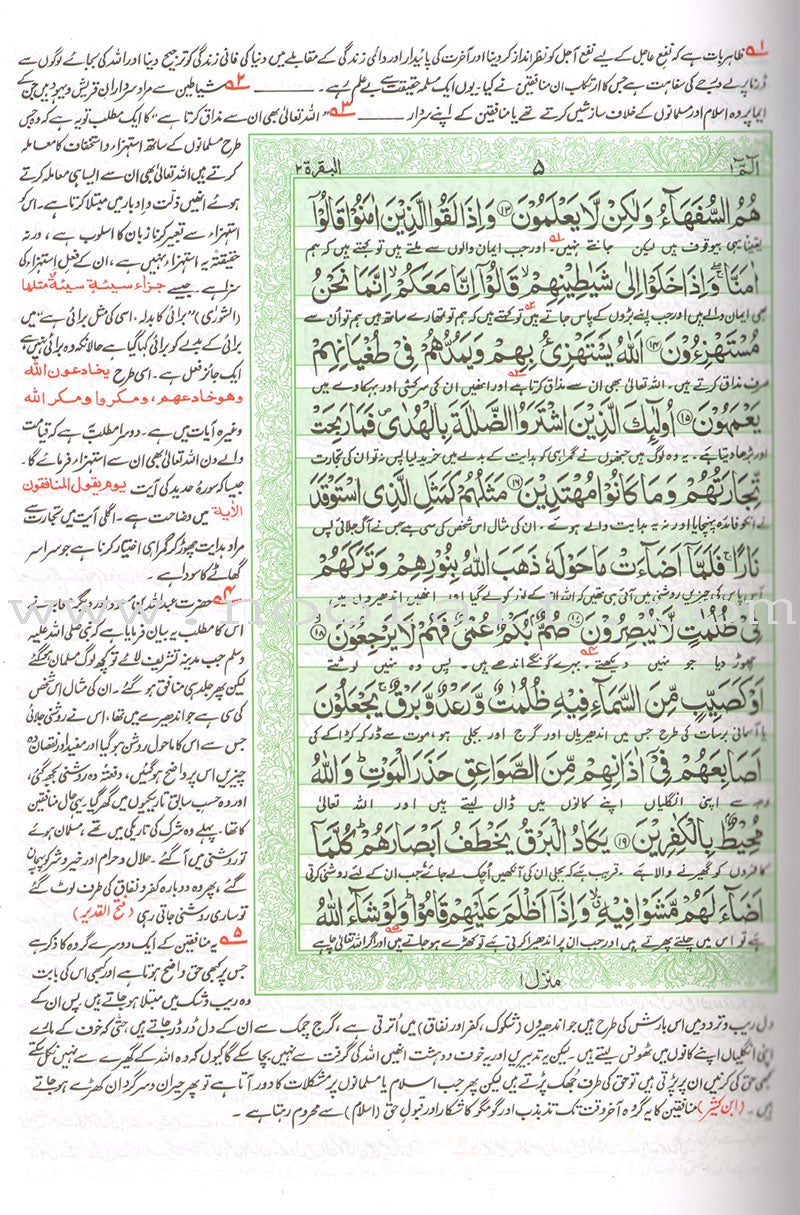 ۱ ظاہر بات ہے کہ نفع عاجل کے لیے نفع آجل کو نظر انداز کر دینا اور آخرت کی پائیدار اور دائمی زندگی کے مقابلے میں دنیا کی فانی زندگی کو ترجیح دینا اور اللہ کی بجائے لوگوں سے
ڈرنا پرلے درجے کی سفاہت ہے جس کا ارتکاب ان منافقین نے کیا۔ یوں ایک مسلمہ حقیقت سے بے علم رہے۔ ــــــــ ۲ شیاطین سے مراد سرداران قریش و یہود ہیں جن کے
ایما پر وہ اسلام اور مسلمانوں کے خلاف سازشیں کرتے تھے یا منافقین کے اپنے سردار ــــــــ ۳ "اللہ تعالیٰ بھی ان سے مذاق کرتا ہے" کا ایک مطلب تو یہ ہے کہ وہ جس
طرح مسلمانوں کے ساتھ استہزاء و استخفاف کا معاملہ
کرتے ہیں اللہ تعالیٰ بھی ان سے ایسا ہی معاملہ کرتے
ہوئے انھیں ذلت و ادبار میں مبتلا کرتا ہے۔ اس کو
استہزاء سے تعبیر کرنا زبان کا اسلوب ہے، ورنہ
حقیقتہً یہ استہزاء نہیں ہے، ان کے فعل استہزاء کی
سزا ہے۔ جیسے جزاء سیئۃ سیئۃ مثلھا
(الشوری) "برائی کا بدلہ، اسی کی مثل برائی ہے" میں
برائی کے بدلے کو برائی کہا گیا ہے حالانکہ وہ برائی نہیں ہے
ایک جائز فعل ہے۔ اسی طرح یخادعون اللہ
وھو خادعھم، ومکروا ومکر اللہ
وغیرہ آیات میں ہے۔ دوسرا مطلب ہے کہ قیامت
والے دن اللہ تعالیٰ بھی ان سے استہزاء فرمائے گا۔
جیسا کہ سورۂ حدید کی آیت یوم یقول المنافقون
الآیۃ میں وضاحت ہے۔ اگلی آیت میں تجارت سے
مراد ہدایت چھوڑ کر گمراہی اختیار کرنا ہے جو سراسر
گھاٹے کا سودا ہے۔
۴ حضرت عبداللہ بن مسعود اور دیگر صحابہ نے
اس کا مطلب یہ بیان فرمایا ہے کہ نبی صلی اللہ علیہ
وسلم جب مدینہ تشریف لائے تو کچھ لوگ مسلمان ہو گئے
لیکن پھر جلد ہی منافق ہو گئے۔ ان کی مثال اس شخص
کی سی ہے جو اندھیرے میں تھا، اس نے روشنی جلائی
جس سے اس کا ماحول روشن ہو گیا اور مفید اور نقصان دہ
چیزیں اس پر واضح ہو گئیں، دفعتہً وہ روشنی بجھ گئی،
اور وہ حسب سابق تاریکیوں میں گھر گیا یہی حال منافقین
کا تھا۔ پہلے وہ شرک کی تاریکی میں تھے، مسلمان ہوئے
تو روشنی میں آ گئے۔ حلال و حرام اور خیر و شر کو پہچان
گئے، پھر وہ دوبارہ کفر و نفاق کی طرف لوٹ گئے
تو ساری روشنی جاتی رہی (فتح القدیر)
۵ یہ منافقین کے ایک دوسرے گروہ کا ذکر ہے
جس پر کبھی حق واضح ہوتا ہے اور کبھی اس کی بابت
وہ ریب و شک میں مبتلا ہو جاتے ہیں۔ پس ان کے
الٓمّٓ ۱ ۵ البقرۃ ۲
هُمُ السُّفَهَآءُ وَلٰكِنْ لَّا يَعْلَمُوْنَ ۱۳ وَاِذَا لَقُوا الَّذِيْنَ اٰمَنُوْا قَالُوْٓا
یقیناً یہی بیوقوف ہیں لیکن جانتے نہیں۔ اور جب ایمان والوں سے ملتے ہیں تو کہتے ہیں کہ ہم
اٰمَنَّا ۖ وَاِذَا خَلَوْا اِلٰى شَيٰطِيْنِهِمْ ۙ قَالُوْٓا اِنَّا مَعَكُمْ ۙ اِنَّمَا نَحْنُ
بھی ایمان والے ہیں اور جب اپنے بڑوں کے پاس جاتے ہیں تو کہتے ہیں کہ ہم تو تمھارے ساتھ ہیں ہم تو ان سے
مُسْتَهْزِءُوْنَ ۱۴ اَللّٰهُ يَسْتَهْزِئُ بِهِمْ وَيَمُدُّهُمْ فِيْ طُغْيَانِهِمْ
صرف مذاق کرتے ہیں۔ اللہ تعالیٰ بھی ان سے مذاق کرتا ہے اور انھیں ان کی سرکشی اور بہکاوے میں
يَعْمَهُوْنَ ۱۵ اُولٰٓئِكَ الَّذِيْنَ اشْتَرَوُا الضَّلٰلَةَ بِالْهُدٰى ۪ فَمَا رَبِحَتْ
اور بڑھا دیتا ہے۔ یہ وہ لوگ ہیں جنھوں نے گمراہی کو ہدایت کے بدلے میں خرید لیا پس نہ تو ان کی تجارت
تِّجَارَتُهُمْ وَمَا كَانُوْا مُهْتَدِيْنَ ۱۶ مَثَلُهُمْ كَمَثَلِ الَّذِى اسْتَوْقَدَ
نے انکو فائدہ پہنچایا اور نہ یہ ہدایت والے ہوئے۔ ان کی مثال اس شخص کی سی ہے جس نے آگ جلائی پس
نَارًا ۚ فَلَمَّآ اَضَآءَتْ مَا حَوْلَهٗ ذَهَبَ اللّٰهُ بِنُوْرِهِمْ وَتَرَكَهُمْ
آس پاس کی چیزیں روشنی میں آئی ہی تھیں کہ اللہ ان کے نور کو لے گیا اور انھیں اندھیروں میں
فِيْ ظُلُمٰتٍ لَّا يُبْصِرُوْنَ ۱۷ صُمٌّۢ بُكْمٌ عُمْيٌ فَهُمْ لَا يَرْجِعُوْنَ ۱۸
چھوڑ دیا جو نہیں دیکھتے۔ بہرے گونگے اندھے ہیں۔ پس وہ نہیں لوٹتے
اَوْ كَصَيِّبٍ مِّنَ السَّمَآءِ فِيْهِ ظُلُمٰتٌ وَّرَعْدٌ وَّبَرْقٌ ۚ يَجْعَلُوْنَ
یا آسمانی برسات کی طرح جس میں اندھیریاں اور گرج اور بجلی ہو، موت سے ڈر کر کڑاکے کی
اَصَابِعَهُمْ فِيْٓ اٰذَانِهِمْ مِّنَ الصَّوَاعِقِ حَذَرَ الْمَوْتِ ؕ وَاللّٰهُ
وجہ سے اپنی انگلیاں اپنے کانوں میں ڈال لیتے ہیں اور اللہ تعالیٰ
مُحِيْطٌۢ بِالْكٰفِرِيْنَ ۱۹ يَكَادُ الْبَرْقُ يَخْطَفُ اَبْصَارَهُمْ ؕ كُلَّمَآ
کافروں کو گھیرنے والا ہے۔ قریب ہے کہ بجلی ان کی آنکھیں اچک لے جائے، جب ان کے لیے روشنی کرتی
اَضَآءَ لَهُمْ مَّشَوْا فِيْهِ ۙ وَاِذَآ اَظْلَمَ عَلَيْهِمْ قَامُوْا ؕ وَلَوْ شَآءَ اللّٰهُ
ہے تو اس میں چلتے پھرتے ہیں اور جب ان پر اندھیرا کرتی ہے تو کھڑے ہو جاتے ہیں اور اگر اللہ تعالیٰ چاہے
منزل ۱
دل ریب و تردد میں اس بارش کی طرح ہیں جو اندھیروں (شکوک، کفر اور نفاق) میں اترتی ہے، گرج چمک سے ان کے دل ڈر ڈر جاتے ہیں، حتیٰ کہ خوف کے مارے
اپنی انگلیاں اپنے کانوں میں ٹھونس لیتے ہیں۔ لیکن یہ تدبیریں اور یہ خوف و دہشت انھیں اللہ کی گرفت سے نہیں بچا سکے گا کیوں کہ وہ اللہ کے گھیرے سے نہیں نکل سکتے
کبھی حق کی کرنیں ان پر پڑتی ہیں تو حق کی طرف جھک پڑتے ہیں لیکن پھر جب اسلام یا مسلمانوں پر مشکلات کا دور آتا ہے تو پھر حیران و سرگردان کھڑے ہو جاتے
ہیں۔ (ابن کثیر) منافقین کا یہ گروہ آخر وقت تک تذبذب اور گومگو کا شکار اور قبول حق (اسلام) سے محروم رہتا ہے۔